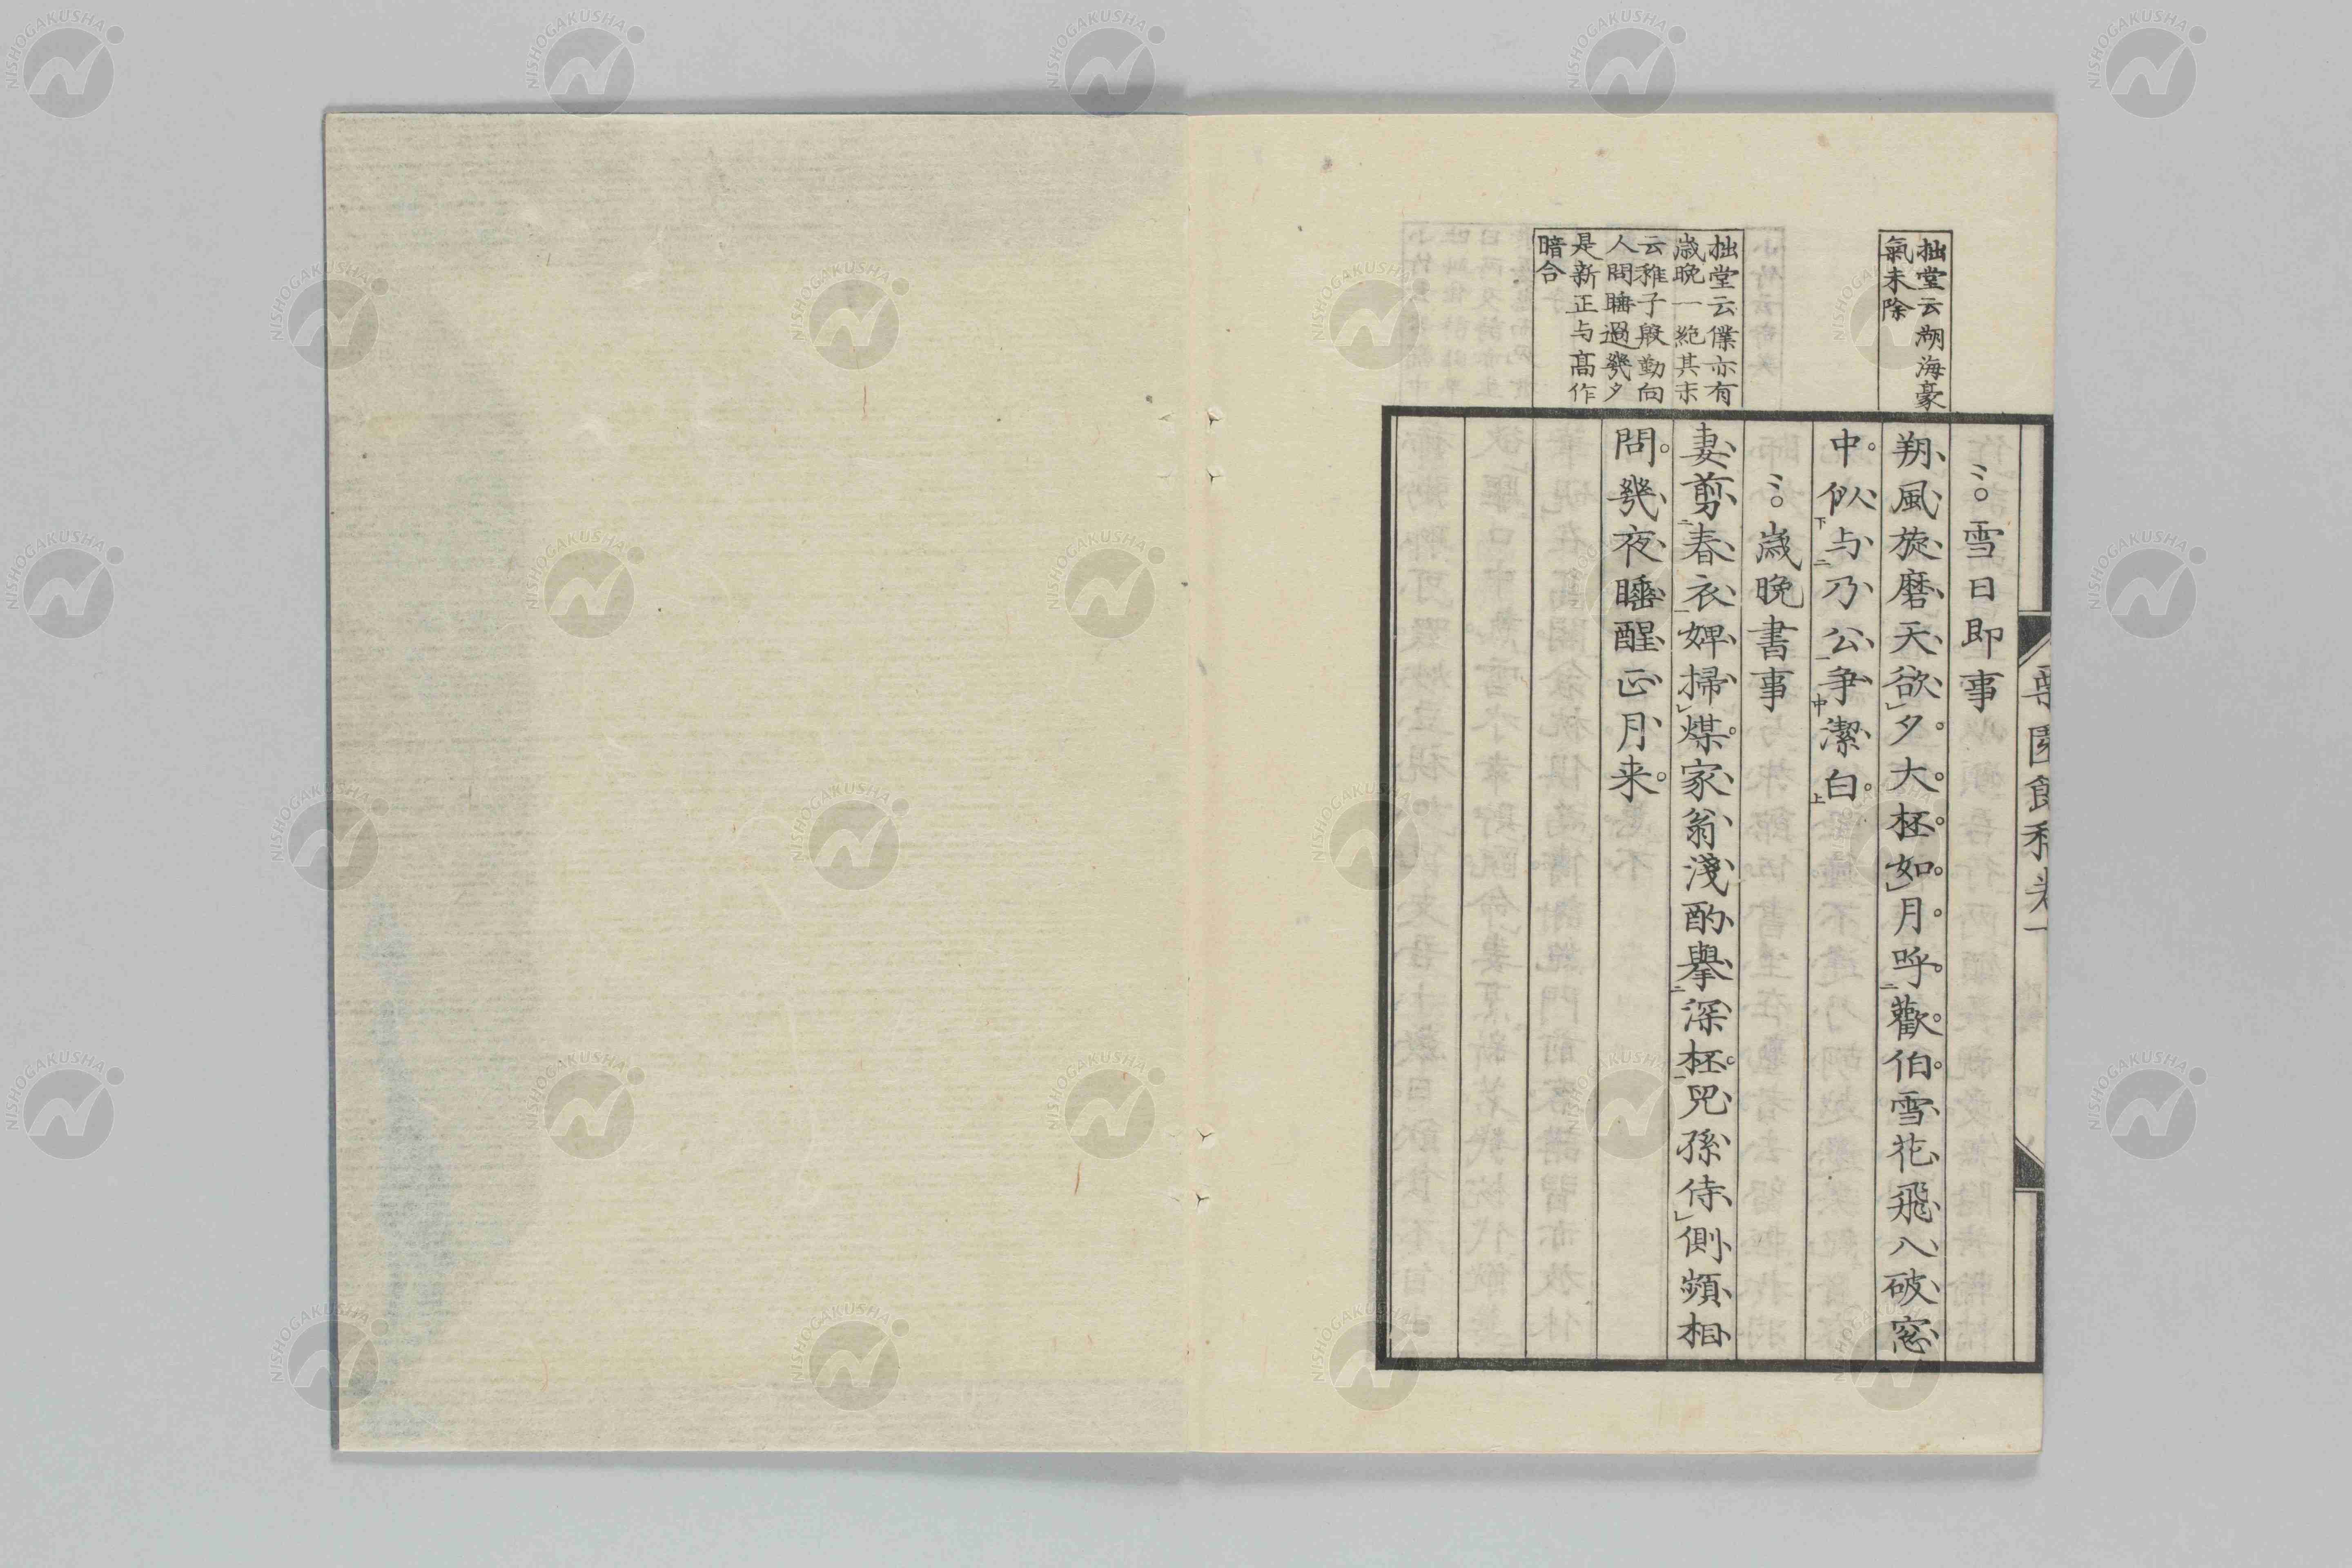 拙堂云湖海豪
氣未除
拙堂云僕亦有
歳晩一絶其末
云稚子殷勤向
人問睡過幾夕
是新正与髙作
暗合
雪日即事
朔風旋磨天欲夕大柸如月呼歡伯雪花飛入破窓
中似与乃公争潔白
歳晩書事
妻剪春衣婢掃煤家翁淺酌擧深柸兒孫侍側頻相
問幾夜睡醒正月来
NISHOGAKUSHA